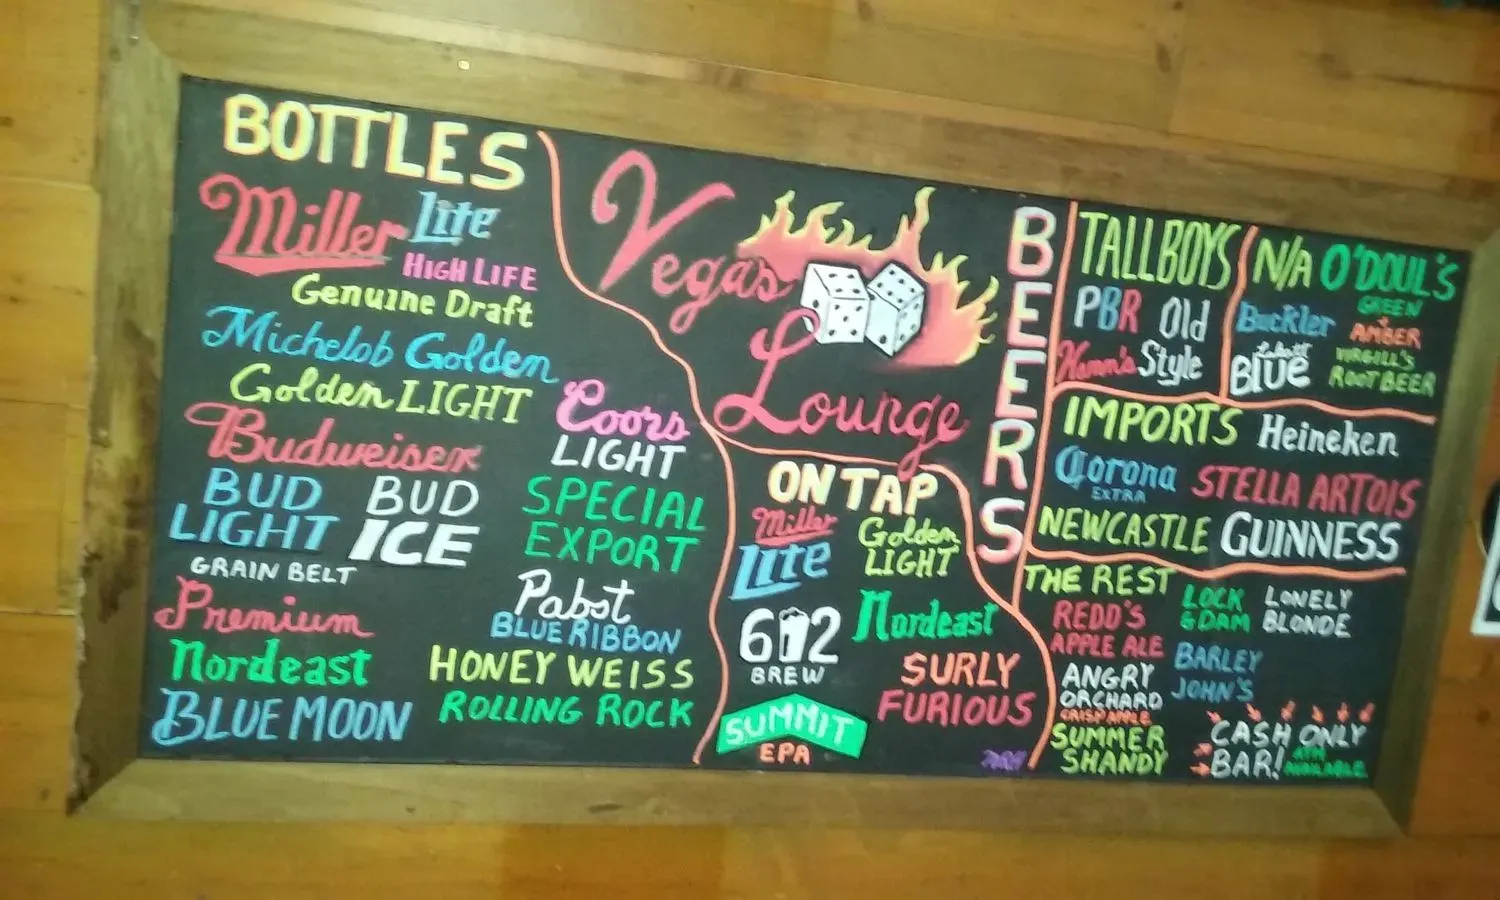 BOTTLES
Miller Lite
HIGH LIFE
Genuine Draft
Michelob Golden
Golden LIGHT
Budweiser
BUD
LIGHT
BUD
ICE
GRAIN BELT
Premium
Nordeast
BLUE MOON
Coors
LIGHT
SPECIAL
EXPORT
Pabst
BLUE RIBBON
HONEY WEISS
ROLLING ROCK
Vegas
Lounge
BEERS
ON TAP
Miller
Lite
Golden
LIGHT
612
BREW
Nordeast
SUMMIT
EPA
SURLY
FURIOUS
TALLBOYS
PBR
Old
Style
Hamm's
N/A O'DOUL'S
GREEN
+
AMBER
Buckler
Labatt
BLUE
VIRGILL'S
ROOT BEER
IMPORTS
Heineken
Corona
EXTRA
STELLA ARTOIS
NEWCASTLE
GUINNESS
THE REST
REDD'S
APPLE ALE
ANGRY
ORCHARD
CRISP APPLE
SUMMER
SHANDY
LOCK
& DAM
LONELY
BLONDE
BARLEY
JOHN'S
CASH ONLY
BAR!
ATM
AVAILABLE